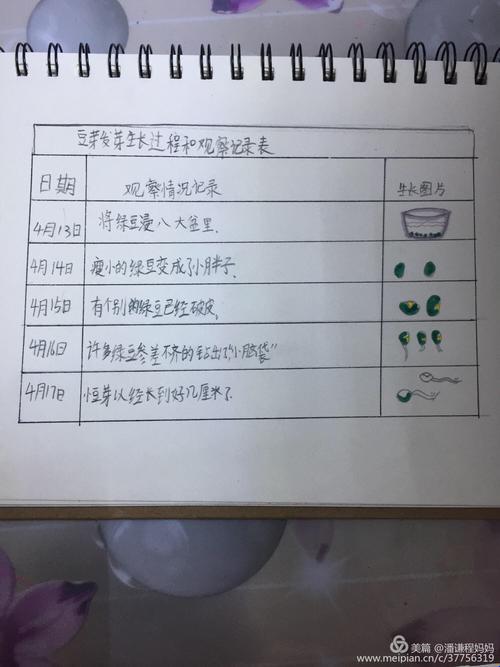 豆芽发芽生长过程和观察记录表
日期 观察情况记录 生长图片
4月13日 将绿豆浸八大盆里.
4月14日 瘦小的绿豆变成了小胖子.
4月15日 有个别的绿豆已经破皮.
4月16日 许多绿豆参差不齐的钻出了“小脑袋”
4月17日 豆芽以经长到好几厘米了.
美篇 @潘谦程妈妈
www.meipian.cn/c/37756319